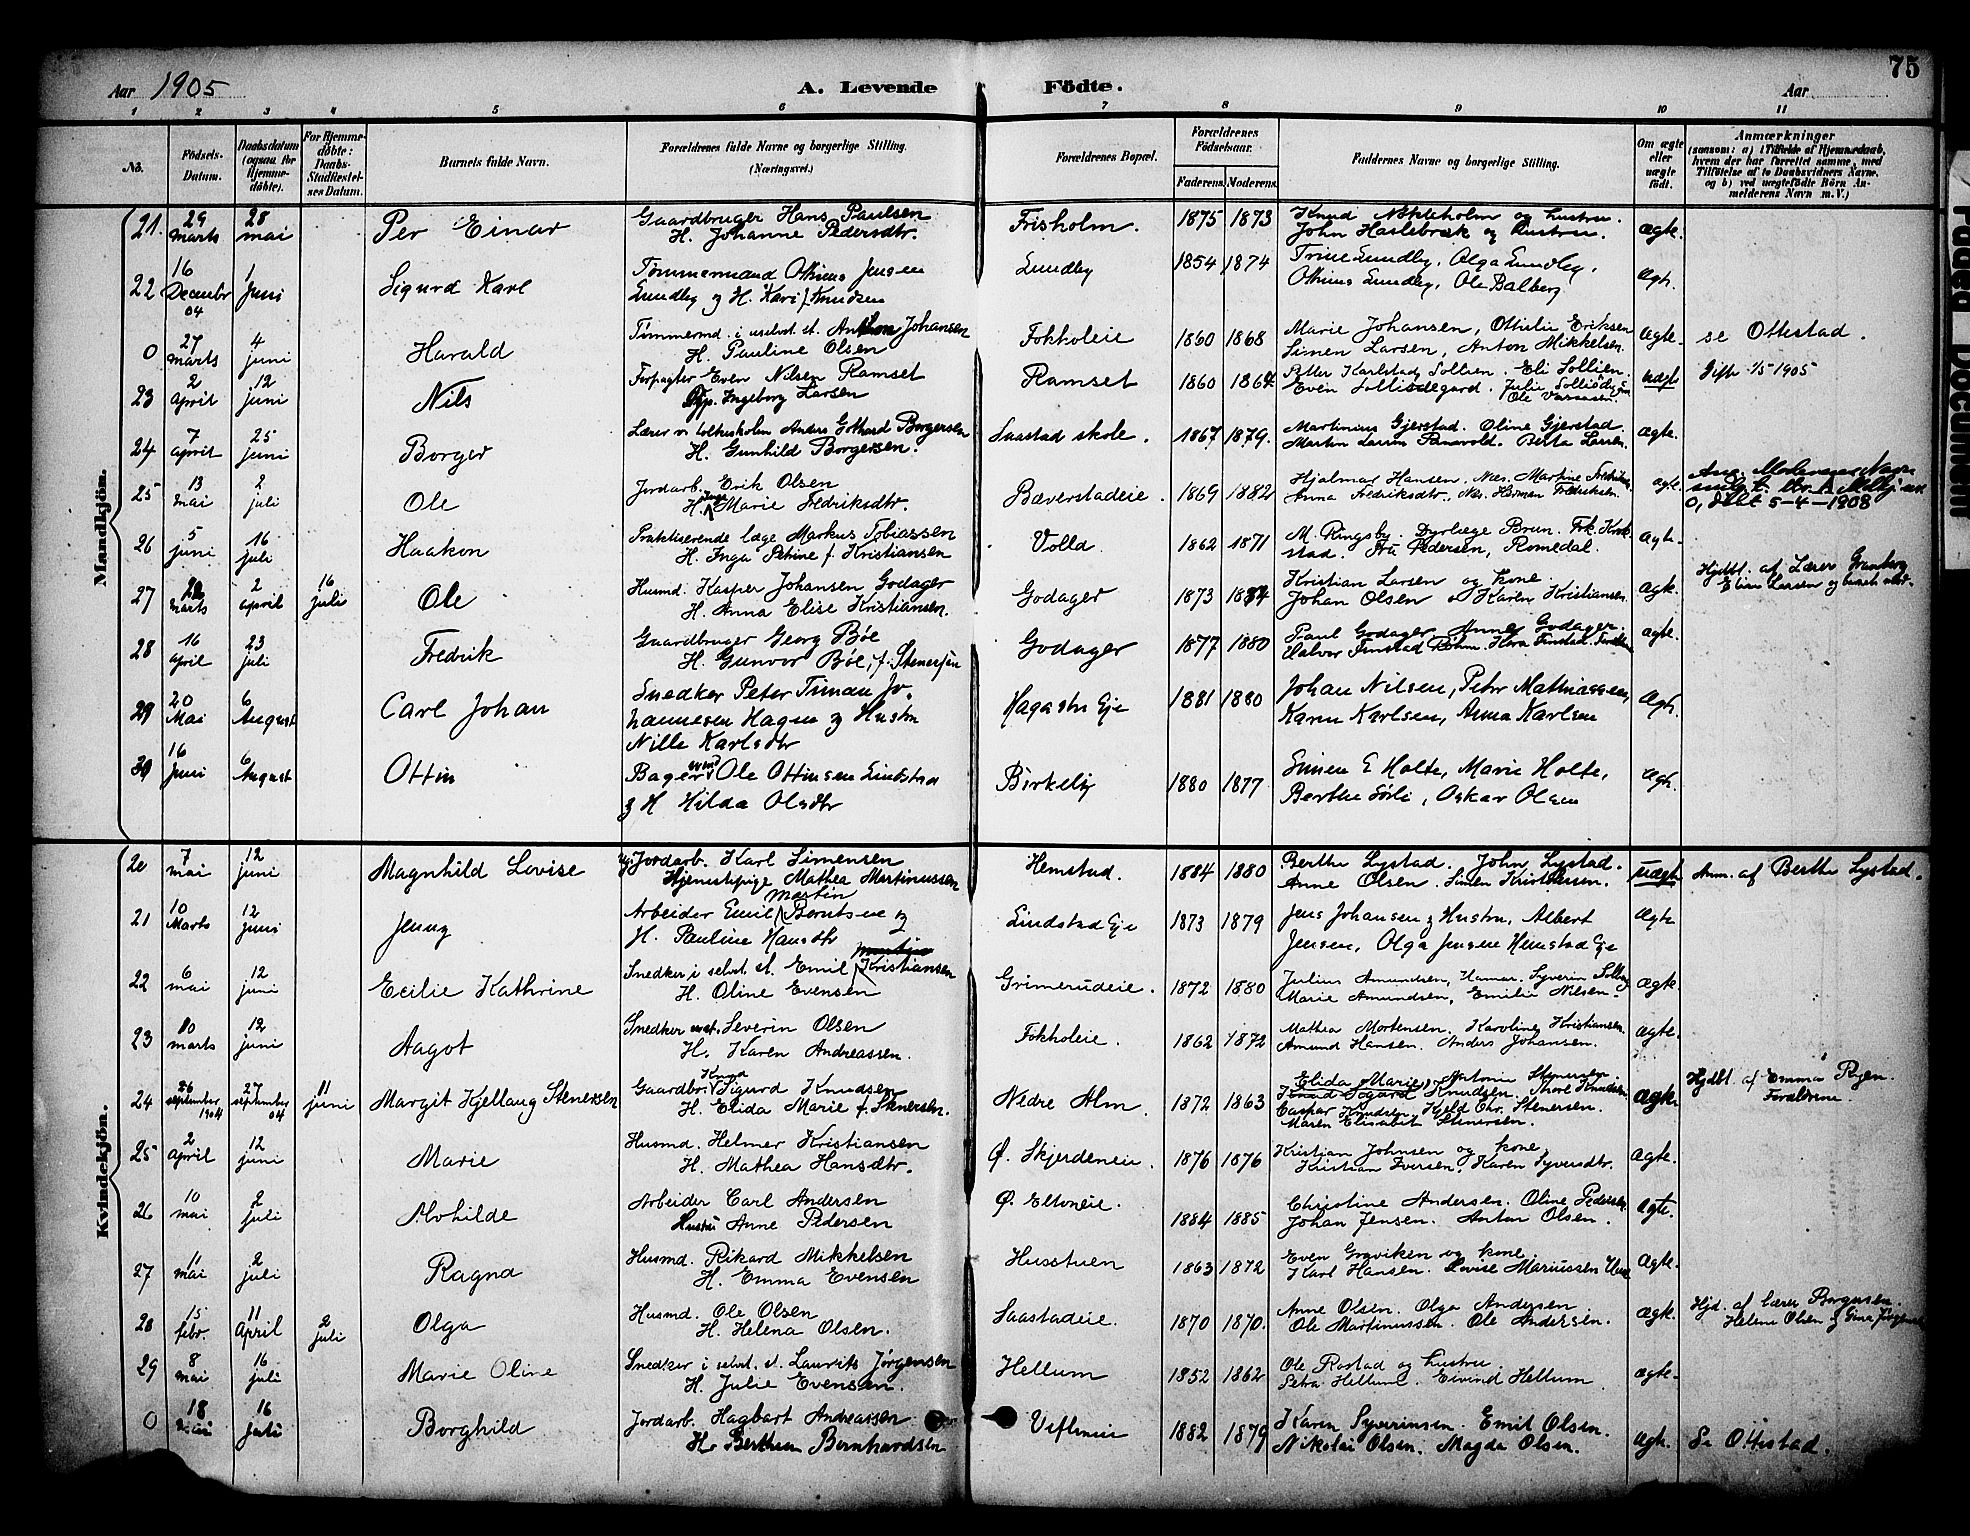 75
Aar 1905 A. Levende Födte. Aar
1 2 3 4 5 6 7 8 9 10 11
No. Födsels-Datum. Daabsdatum (ogsaa for Hjemmedöbte). For Hjemmedöbte: Daabs-Stadfæstelses Datum. Barnets fulde Navn. Forældrenes fulde Navne og borgerlige Stilling. (Næringsvei.) Forældrenes Bopæl. Forældrenes Födselsaar. Faderens. Moderens. Faddernes Navne og borgerlige Stilling. Om ægte eller uægte födt. Anmærkninger (saasom: a) i Tilfælde af Hjemmedaab, hvem der har forrettet samme, med Tilföielse af to Daabsvidners Navne, og b) ved uægtefödte Börn Anmelderens Navn m. V.)
Mandkjön.
21. 29 marts 28 mai Per Einar Gaardbruger Hans Paulsen Frisholm. 1875 1873 Knud og hustru. ægte.
H. Johanne Pedersdtr. John og hustru.
22 16 Decembr 04 1 Juni Sigurd Karl Tømmermand Othinus Jensen Lundby 1854 1874 Trine Lundby, Olga Lundby, ægte.
Lundby og H. Kari Knudsen Othinus Lundby, Ole Balberg
0 27 marts 4 juni Harald Tømmermd. i uselvst. st. Johansen Fokholeie 1860 1868 Marie Johansen, Ottilie Eriksen ægte. se Ottestad.
H. Pauline Olsen Simen Larsen, Anton Mikkelsen.
23 2 april 12 juni Nils Forpagter Even Nilsen Ramset Ramset 1860 1864 Petter Karlstad Sollien. Eli Sollien. uægte Gifte 1/5 1905
Ingeborg Larsen Even
24 7 april 25 juni Borger Lærer v. folkeskolen Anders Gothard Borgersen Saastad skole. 1867 1879. Martinius Gjerstad. Oline Gjerstad. ægte.
H. Gunhild Borgersen. Martin Larsen Berta Larsen.
25 13 mai 2 juli Ole Jordarb. Erik Olsen Bæverstadeie. 1869 1882 Hjalmar Hansen, Næs. Martine ægte.
H. Marie Fredriksdtr. Anna Fredriksdtr, Næs. Herman Fredriksen. 5-4-1908
26 5 juni 16 juli Haakon Praktiserende læge Markus Tobiassen Volld. 1862 1871 M. Ringsby. Dyrlæge Brun. Frk. ægte.
H. Inga Petrine f. Kristiansen Fru Pedersen, Romedal.
27 marts 2 april 16 juli Ole Husmd. Kasper Johansen Godager Godager 1873 Kristian Larsen og kone. ægte. Hjdbt. af Lærer
H. Anna Elise Kristiansen. Johan Olsen Karen Kristiansen. Larsen og
28 16 april 23 juli Fredrik Gaardbruger Georg Bøe Godager 1877 1880 Paul Godager, Anne Godager. ægte.
H. Gunvor Bøe, f. Stenersen Halvor Finstad
29 20 Mai 6 August Carl Johan Snedker Peter Timan Jo- Hagastu Eje 1881 1880 Johan Nilsen, Petr Mathiassen, ægte.
hannesen Hagen og Hustru Karen Karlsen, Anna Karlsen
Nille Karlsdtr
30 16 Juni 6 August Ottin Bager Ole Ottinsen Lindstad Birkeby 1880 1877 Simen E Holte, Marie Holte, ægte.
og H Hilda Olsdtr Berthe Sørli, Oskar Olsen
Kvindekjön.
20 7 mai 12 juni Magnhild Lovise Jordarb. Karl Simensen Hemstad. 1884 1880 Berthe Lystad. John Lystad. uægte Anm. af Berthe Lystad.
Mathea Martinussen Anne Olsen. Simen Kristiansen.
21 10 Marts 12 juni Jenny Arbeider Emil Martin Berntsen og Lindstad Eje 1873 1879 Jens Johansen og Hustru, Albert ægte
H. Pauline Hansdtr Jensen, Olga Jensen Hemstad Eje
22 6 mai 12 juni Ecilie Kathrine Snedker i selvst. st. Emil Kristiansen Grimerudeie. 1872 1880 Julius Amundsen, Hamar. Syverin ægte.
H. Oline Evensen Marie Amundsen, Emilie Nilsen.
23 10 marts 12 juni Aagot Snedker Severin Olsen Fokholeie. 1862 1872 Mathea Mortensen. Karoline Kristiansen. ægte.
H. Karen Andreassen. Amund Hansen. Anders Johansen.
24 26 september 1904 27 september 04 11 juni Margit Kjellaug Stenersen Gaardbr. Knud Sigurd Knudsen Nedre Alm 1872 1863 Elida Marie, Antonie Stenersen ægte. Hjdbt. af Emma Ryen.
H. Elida Marie f. Stenersen. Knud Sigurd Knudsen, Thore Knudsen Forældrene.
Caspar Knudsen, Kjeld Chr. Stenersen.
Maren Elisabet Stenersen.
25 2 april 12 juni Marie Husmd. Helmer Kristiansen Ø. Skjerdeneie. 1876 1876 Kristian Johnsen og kone. ægte.
H. Mathea Hansdtr. Kristian Iversen. Karen Syversdtr.
26 10 mai 2 juli Alvhilde Arbeider Carl Andersen Ø. Eltoneie. 1884 1885 Christine Andersen. Oline Pedersen ægte.
Hustru Anne Pedersen Johan Jensen. Anton Olsen.
27 11 mai 2 juli Ragna Husmd. Rikard Mikkelsen Husstuen 1863 1872 Even Graviken og kone ægte.
H. Emma Evensen Karl Hansen. Lovise Mariussen
28 15 febr. 11 April 2 juli Olga Husmd. Ole Olsen Saastadeie. 1870 1870. Anne Olsen. Olga Andersen ægte. Hjd. af lærer Borgersen.
H. Helena Olsen. Ole Martinussen. Ole Andersen. Helene Olsen og
29 8 mai 16 juli Marie Oline Snedker i selvst. st. Laurits Jørgensen Hellum 1852 1862 Ole Rostad og hustru. ægte.
H. Julie Evensen. Petra Hellum. Eivind Hellum
0 18 mai 16 juli Borghild Jordarb. Hagbart Andreassen 1882 1879 Karen Syverinsen. Emil Olsen. ægte. Se Ottestad.
H. Berthea Bernhardsen Nikolai Olsen. Magda Olsen.
Padea Document